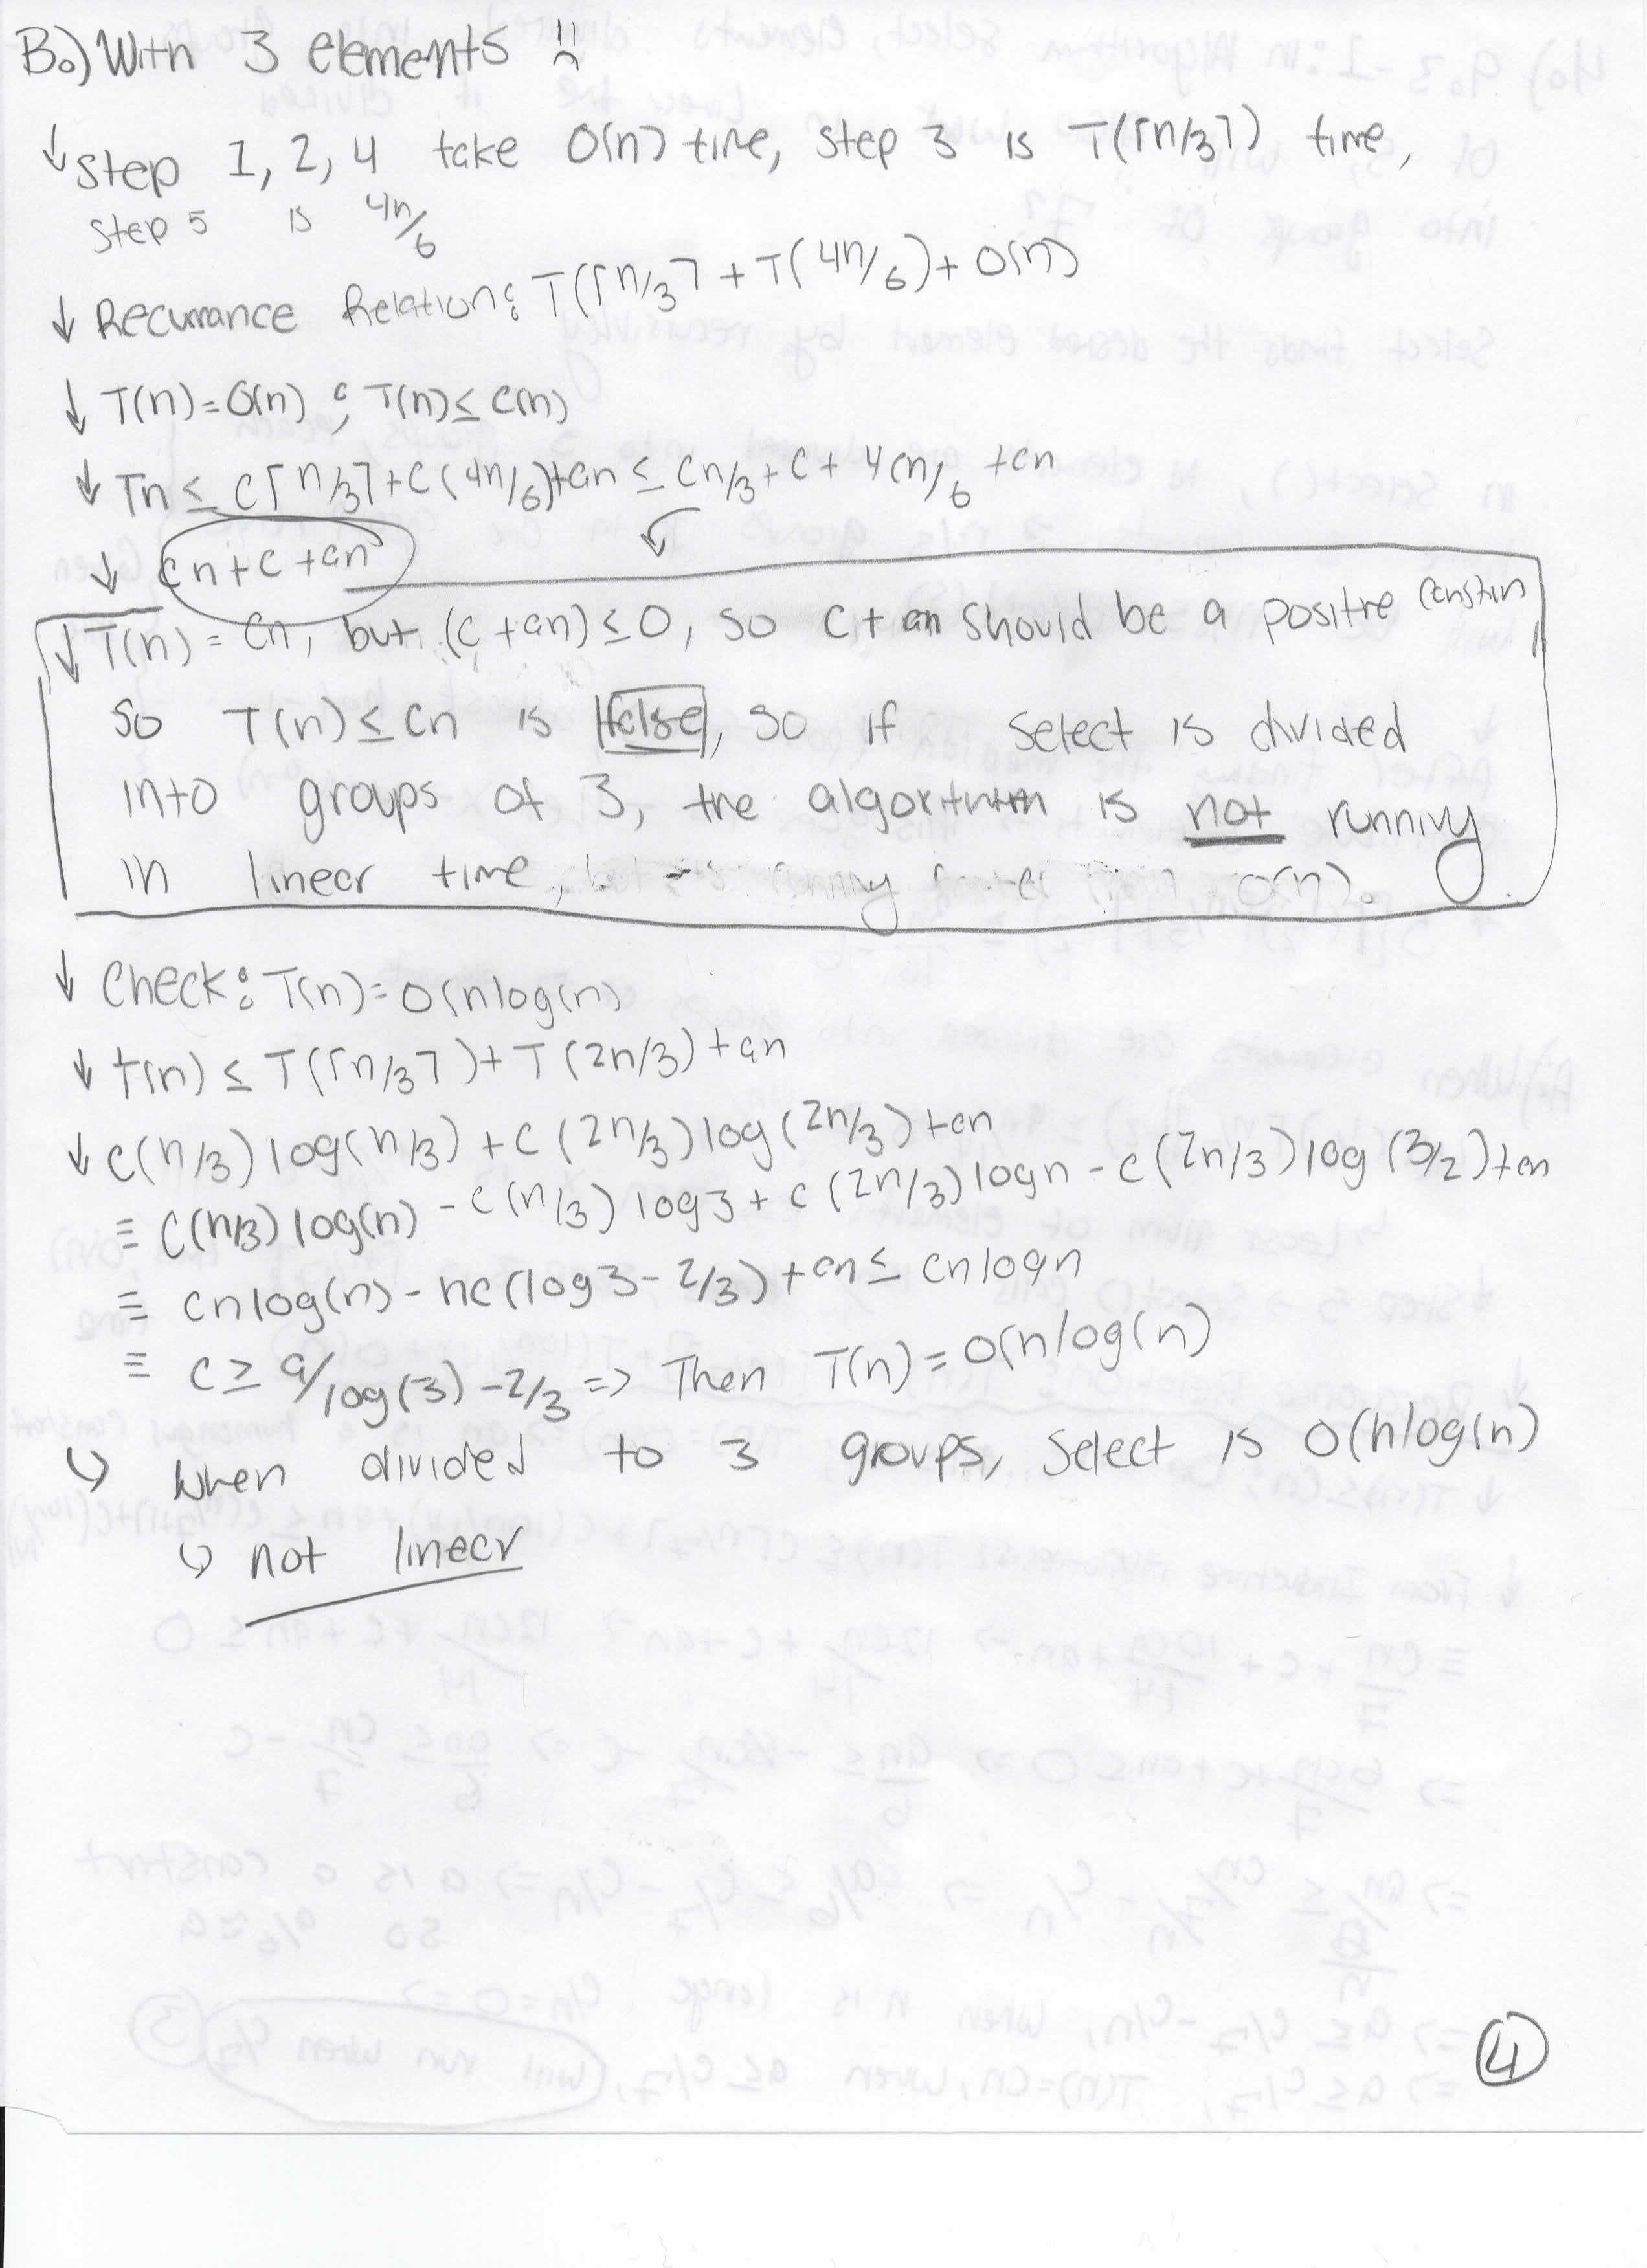 B.) With 3 elements
↓ Step 1, 2, 4 take O(n) time, step 3 is T(⌈n/3⌉) time,
step 5 is 4n/6
↓ Recurrance Relation: T(⌈n/3⌉ + T(4n/6) + O(n)
↓ T(n)=O(n) ; T(n) ≤ c(n)
↓ Tn ≤ c⌈n/3⌉+c(4n/6)+an ≤ cn/3 + c + 4cn/6 + an
↓ cn+c+an
↓ T(n) = cn, but (c+an) ≤ 0, so c+an should be a positive constan
so T(n) ≤ cn is false, so if select is divided
into groups of 3, the algorthtm is not running
in linear time, running O(n).
↓ Check: T(n)=O(nlog(n)
↓ t(n) ≤ T(⌈n/3⌉) + T(2n/3) + an
↓ c(n/3)log(n/3) + c(2n/3)log(2n/3) + an
≡ c(n/3)log(n) - c(n/3)log3 + c(2n/3)logn - c(2n/3)log(3/2)+an
≡ cnlog(n) - nc(log3 - 2/3) + an ≤ cnlogn
≡ c ≥ a/log(3) - 2/3 => Then T(n) = O(nlog(n)
↳ When divided to 3 groups, select is O(nlog(n)
↳ not linear
4